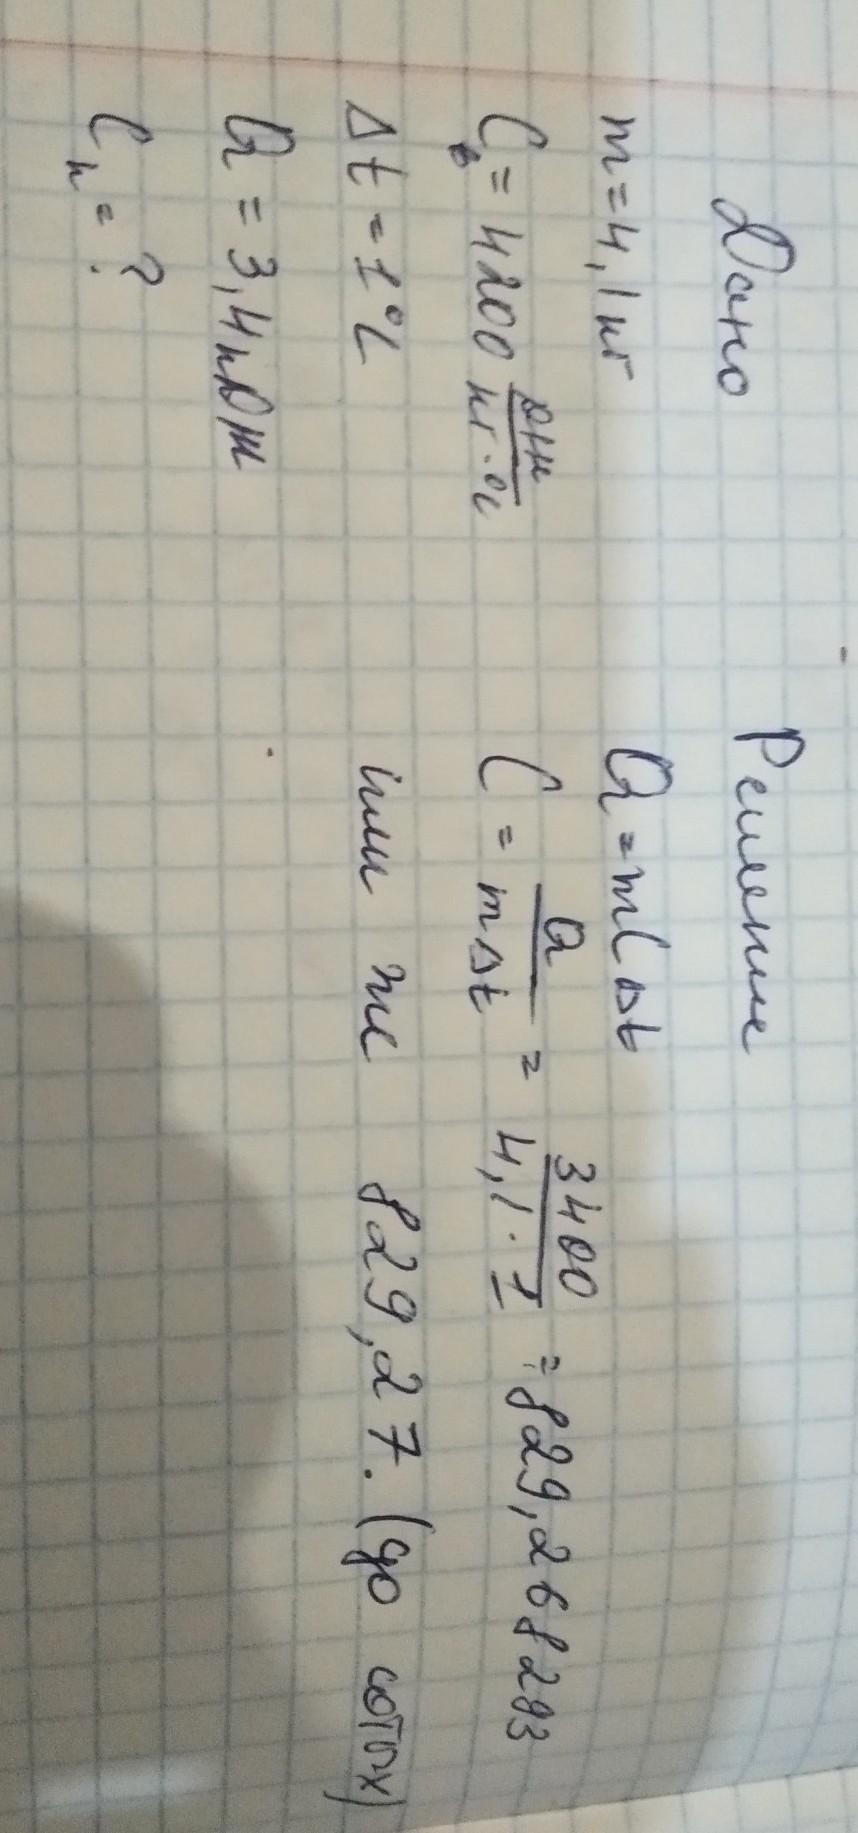 Дано
m = 4,1 кг
Cв = 4200 Дж/кг·°C
Δt = 1°C
Q = 3,4 кДж
Cк = ?
Решение
Q = mCΔt
C = Q/mΔt = 3400/4,1·1 = 829,268293
или же 829,27. (до сотых)